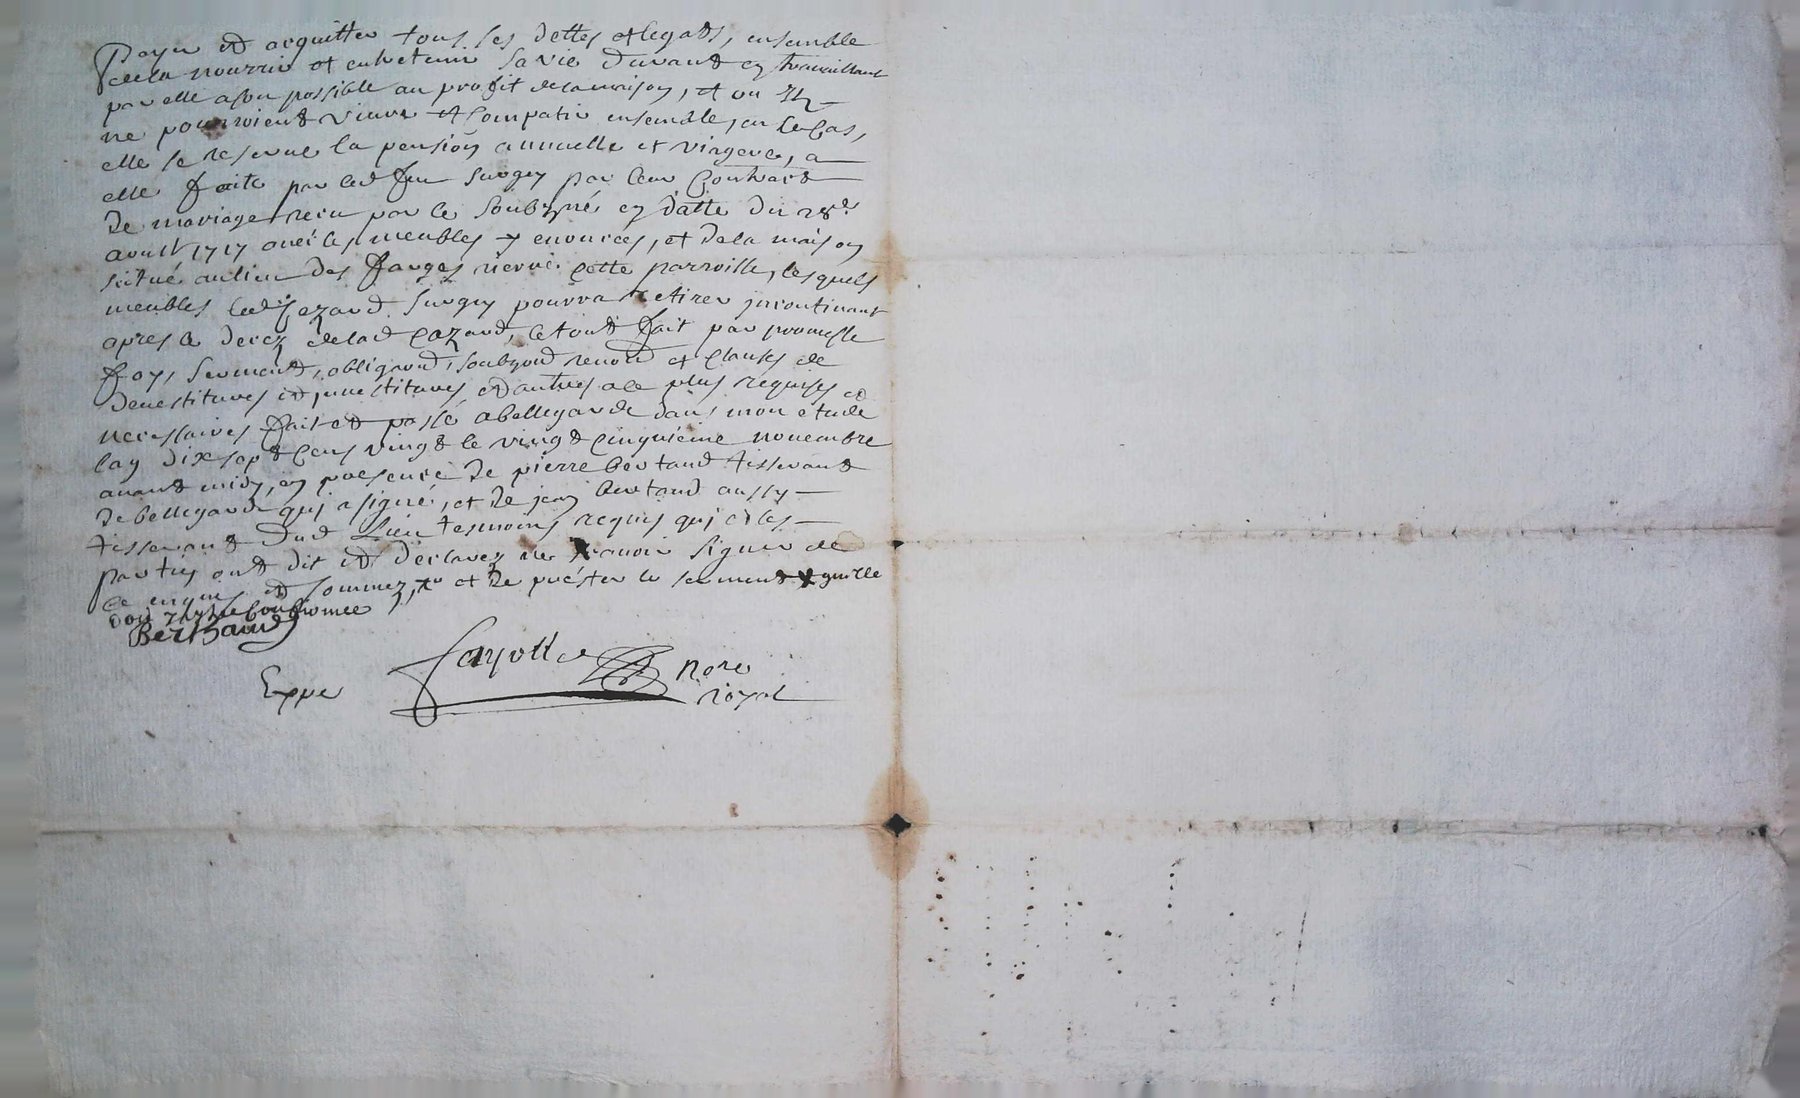 Payer et acquitter tous ses dettes et legats, ensemble
de la nourrir et entretenir sa vie durant en travaillant
par elle a son possible au profit de la maison, et ou Ilz
ne pourroient vivre et compatir ensemble, en ce cas,
elle se reserve la pension annuelle et viagere, a
elle faite par led feu Surgey par leur Contract
de mariage receu par le soubzné en datte du 28e
avril 1717 avec les meubles y enoncés, et de la maison
situé au lieu des farges riere cette parroisse, lesquels
meubles surgey pourra retirer incontinant
apres le decez de lad Cazard, le tout fait par promesse
foy, serment, obligaond, soubzond renond et clauses de
devestitures et investitures, et autres ale plus requises et
necessaires fait et passé a bellegarde dans mon etude
lan dix sept cens vingt le vingt cinquieme novembre
avant midy, en presence de pierre bertand tisserand
de bellegarde qui a signé, et de jean bertand aussy
tisserand dud Lieu tesmoins requis qui et les
parties ont dit et declarez ne scavoir signer de
ce enquis et sommez, et de préster le serment
Berthand
Expe
Nore
royal